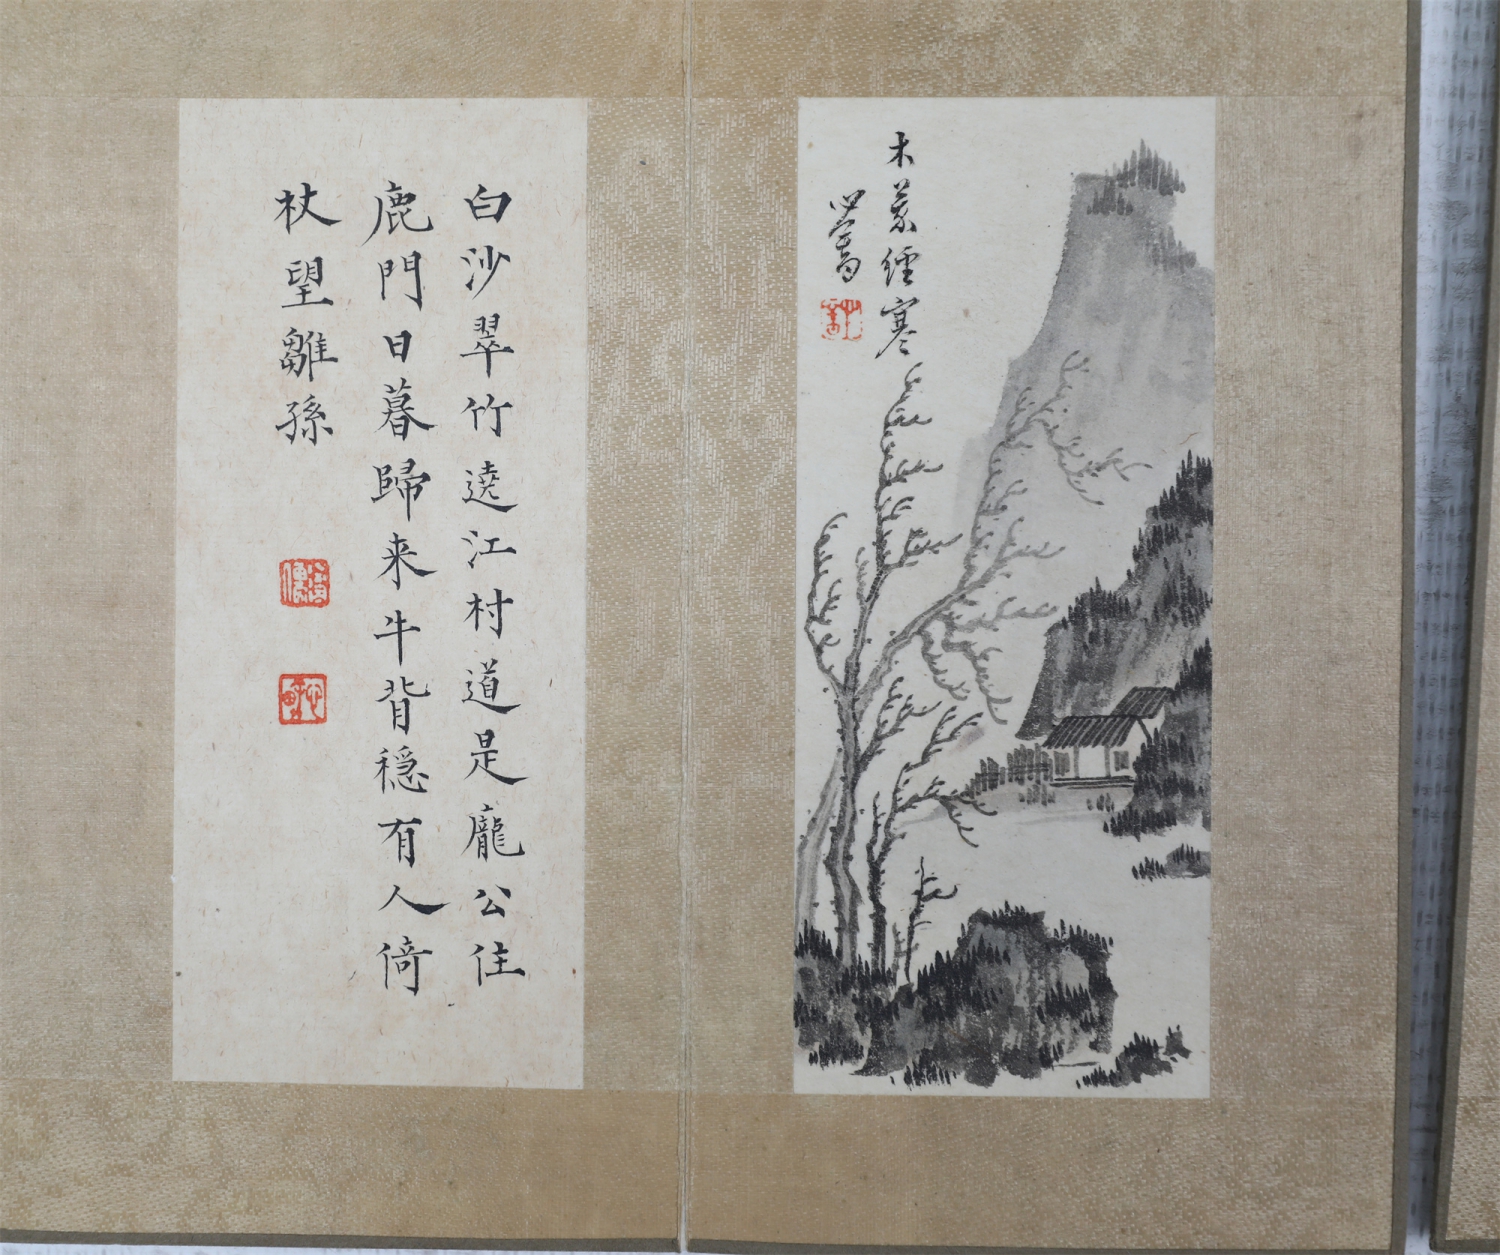 木葉經寒
心畬
心畬
白沙翠竹遶江村道是龐公住
鹿門日暮歸来牛背穩有人倚
杖望雛孫
溥儒